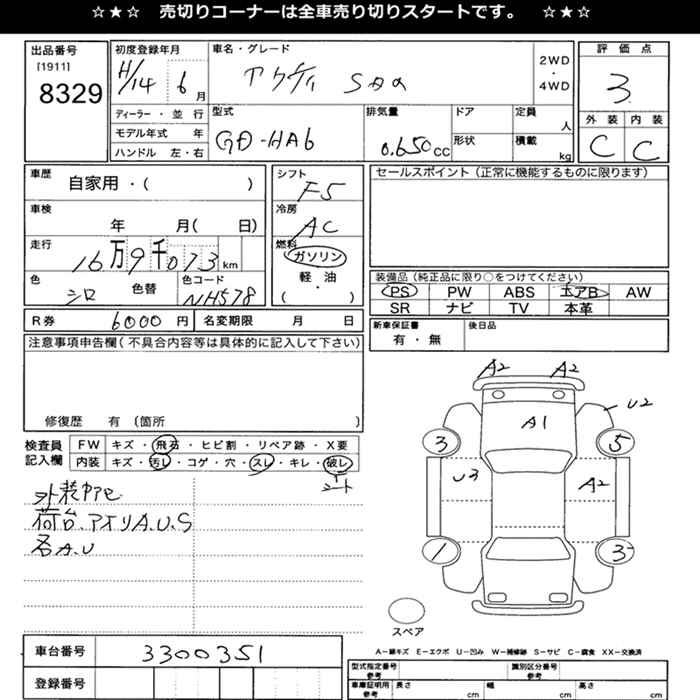 ☆★☆ 売切りコーナーは全車売り切りスタートです。 ☆★☆
出品番号
[1911]
8329
初度登録年月
H/14 6 月
車名・グレード
アクティ SDX
2WD
・
4WD
評価点
3
外装 内装
C C
ディーラー・並行
モデル年式 年
ハンドル 左・右
型式
GD-HA6
排気量
0.650 cc
ドア
形状
定員
人
積載
kg
車歴
自家用・( )
車検
年 月( 日)
走行
16万9千073 km
色
シロ
色替
色コード
NH578
シフト
F5
冷房
AC
燃料
ガソリン
軽・油
( ・ )
セールスポイント(正常に機能するものに限ります)
装備品(純正品に限り○をつけてください)
PS PW ABS エアB AW
SR ナビ TV 本革
R券 6000 円
名変期限 月 日
新車保証書
有・無
後日品
注意事項申告欄(不具合内容等は具体的に記入して下さい)
修復歴 有(箇所 )
検査員
記入欄
FW キズ・飛石・ヒビ割・リペア跡・X要
内装 キズ・汚レ・コゲ・穴・スレ・キレ・破レ
シート
荷台、アオリA.U.S
各A.U
A2 A2
U2
A1
3 5
U3 A2
1 3
スペア
A－線キズ E－エクボ U－凹み W－補修跡 S－サビ C－腐食 XX－交換済
車台番号 3300351
登録番号
型式指定番号
参考
識別区分番号
参考
車庫証明用
参考
長さ cm
幅 cm
高さ cm